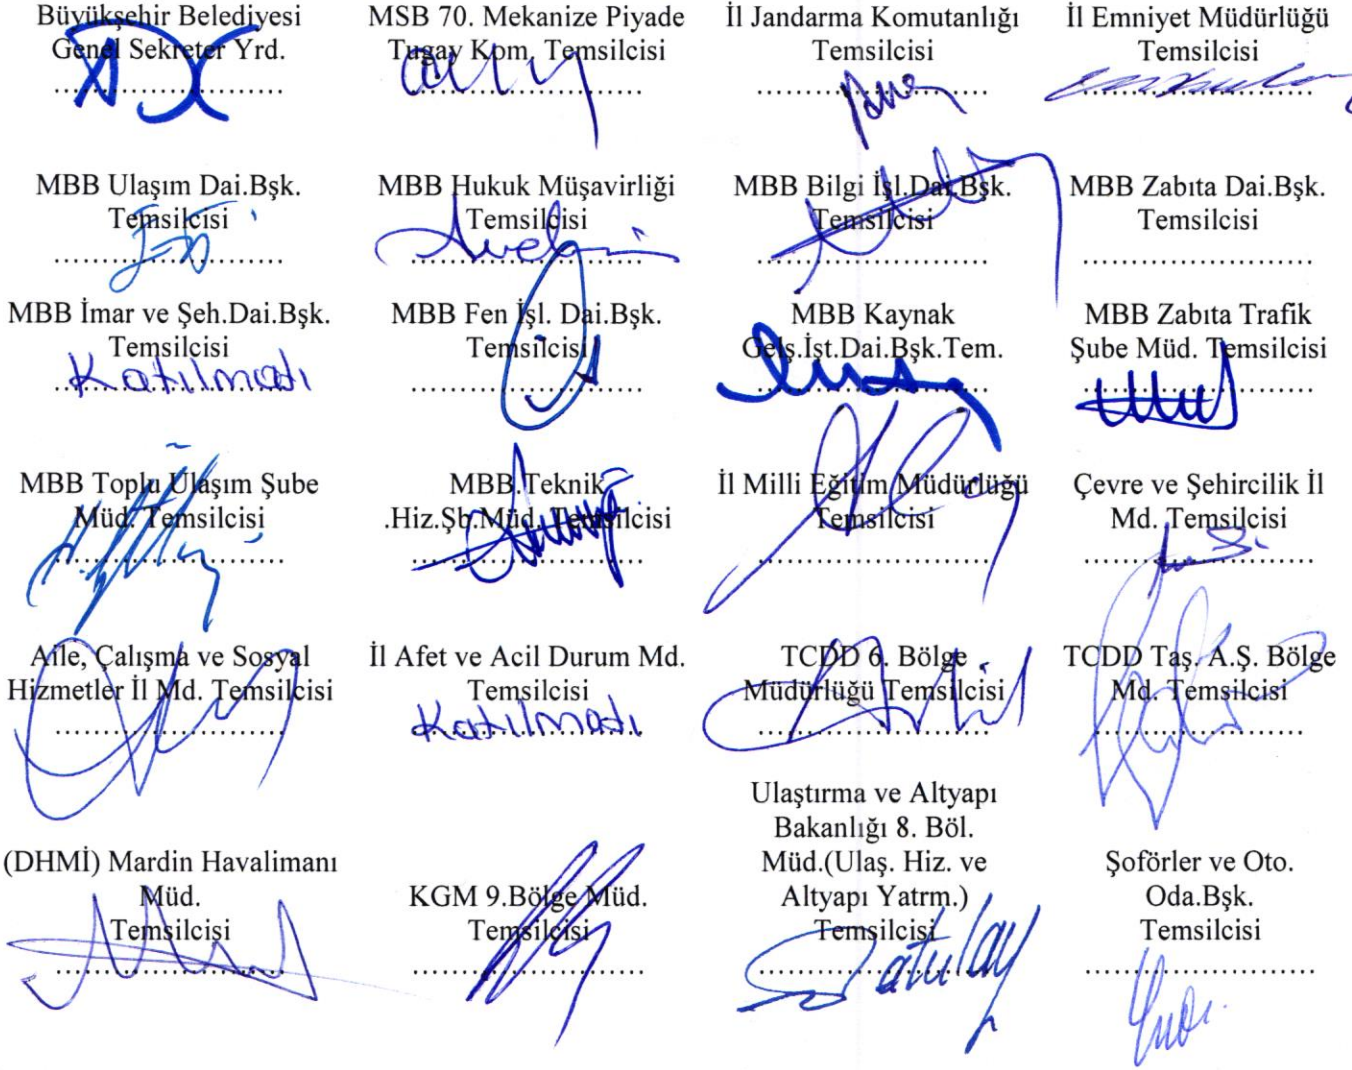 Büyükşehir Belediyesi
Genel Sekreter Yrd.
........................
MSB 70. Mekanize Piyade
Tugay Kom. Temsilcisi
........................
İl Jandarma Komutanlığı
Temsilcisi
........................
İl Emniyet Müdürlüğü
Temsilcisi
........................
MBB Ulaşım Dai.Bşk.
Temsilcisi
........................
MBB Hukuk Müşavirliği
Temsilcisi
........................
MBB Bilgi İşl.Dai.Bşk.
Temsilcisi
........................
MBB Zabıta Dai.Bşk.
Temsilcisi
........................
MBB İmar ve Şeh.Dai.Bşk.
Temsilcisi
Katılmadı
MBB Fen İşl. Dai.Bşk.
Temsilcisi
........................
MBB Kaynak
Gelş.İst.Dai.Bşk.Tem.
........................
MBB Zabıta Trafik
Şube Müd. Temsilcisi
........................
MBB Toplu Ulaşım Şube
Müd. Temsilcisi
........................
MBB Teknik
.Hiz.Şb.Müd. Temsilcisi
........................
İl Milli Eğitim Müdürlüğü
Temsilcisi
........................
Çevre ve Şehircilik İl
Md. Temsilcisi
........................
Aile, Çalışma ve Sosyal
Hizmetler İl Md. Temsilcisi
........................
İl Afet ve Acil Durum Md.
Temsilcisi
Katılmadı
TCDD 6. Bölge
Müdürlüğü Temsilcisi
........................
TCDD Taş. A.Ş. Bölge
Md. Temsilcisi
........................
(DHMİ) Mardin Havalimanı
Müd.
Temsilcisi
........................
KGM 9.Bölge Müd.
Temsilcisi
........................
Ulaştırma ve Altyapı
Bakanlığı 8. Böl.
Müd.(Ulaş. Hiz. ve
Altyapı Yatrm.)
Temsilcisi
........................
Şoförler ve Oto.
Oda.Bşk.
Temsilcisi
........................